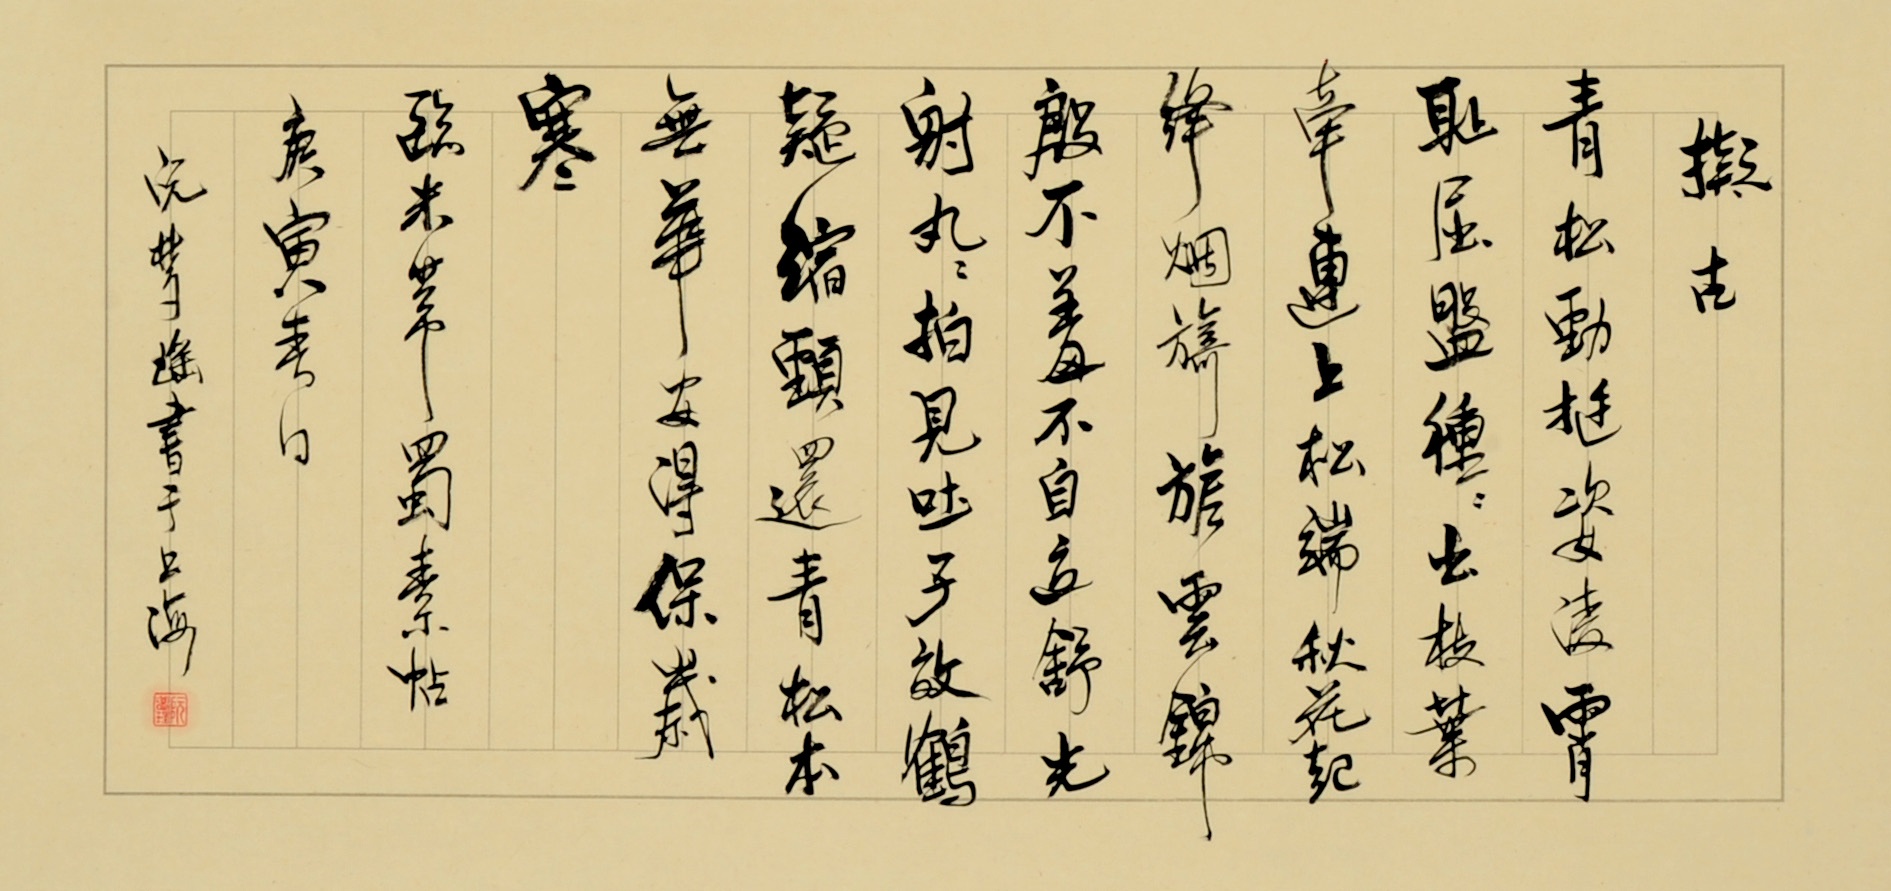 擬古
青松勁挺姿凌霄
恥屈盤種〻出枝葉
牽連上松端秋花起
絳烟旖旎雲錦
殷不羞不自立舒光
射丸〻柏見吐子效鶴
疑縮頸還青松本
無華安得保歲
寒
臨米芾蜀素帖
庚寅春日
阮瑤書于上海